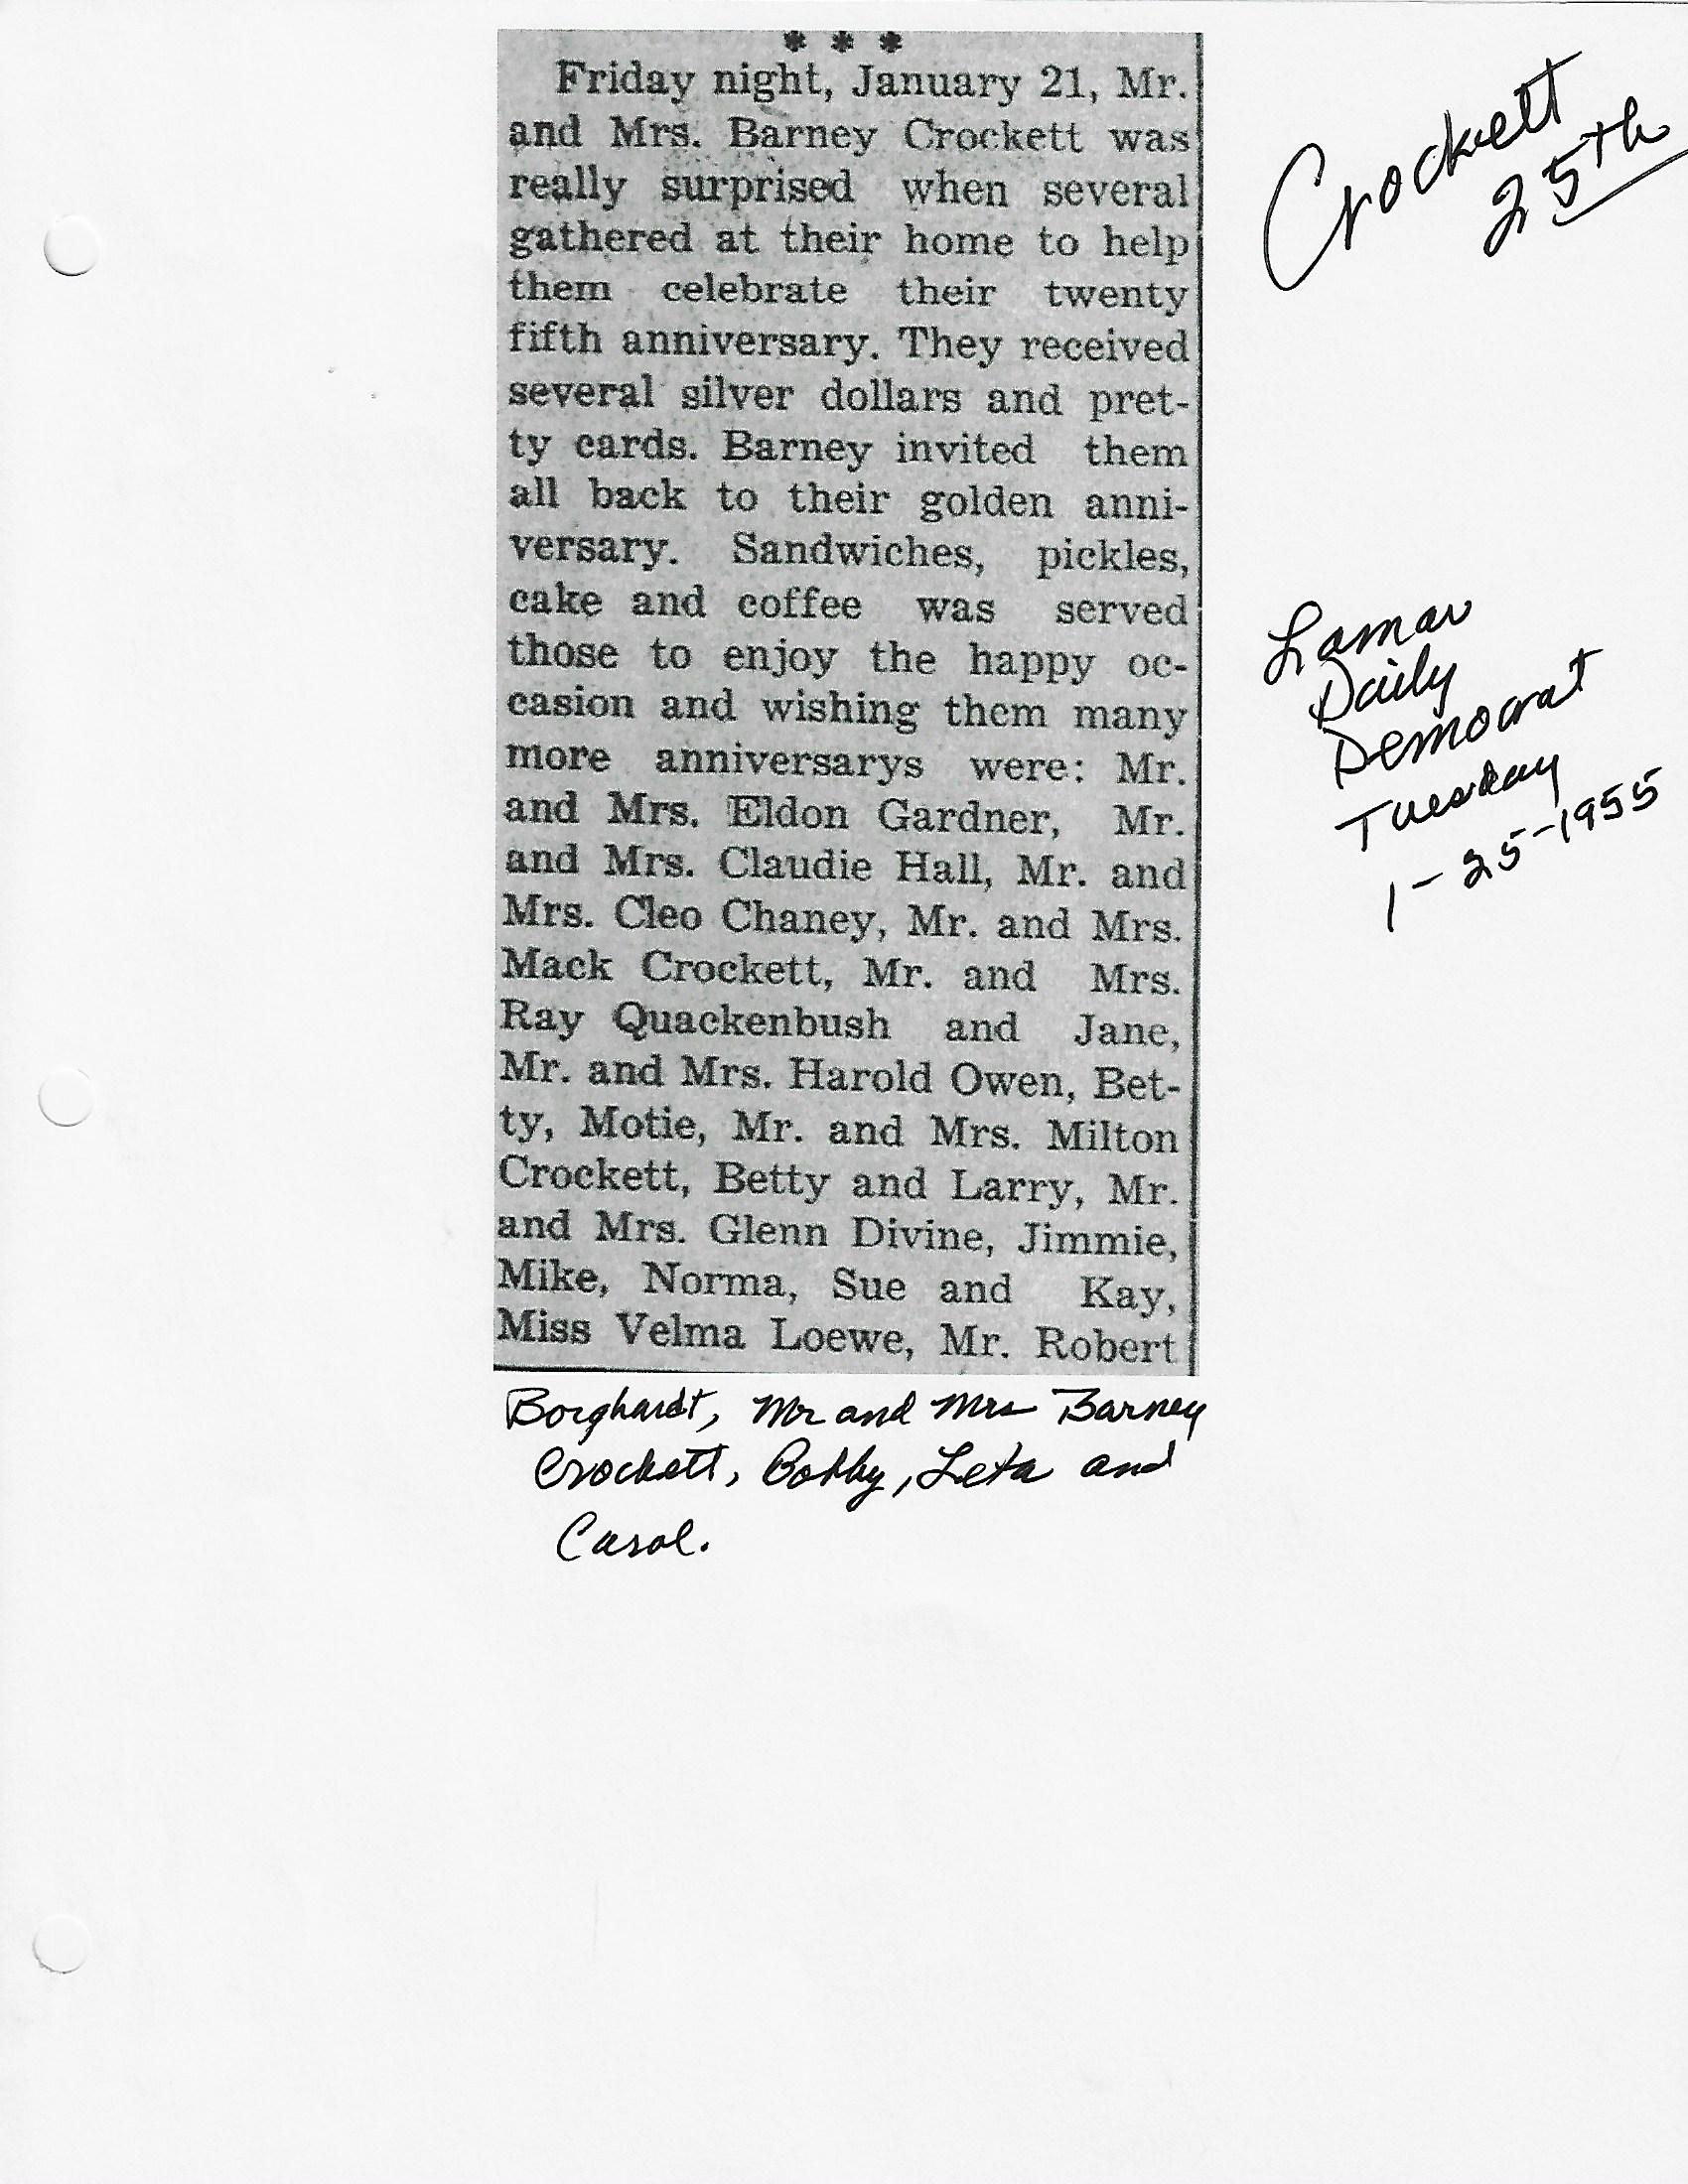 * * *
Friday night, January 21, Mr.
and Mrs. Barney Crockett was
really surprised when several
gathered at their home to help
them celebrate their twenty
fifth anniversary. They received
several silver dollars and pret-
ty cards. Barney invited them
all back to their golden anni-
versary. Sandwiches, pickles,
cake and coffee was served
those to enjoy the happy oc-
casion and wishing them many
more anniversarys were: Mr.
and Mrs. Eldon Gardner, Mr.
and Mrs. Claudie Hall, Mr. and
Mrs. Cleo Chaney, Mr. and Mrs.
Mack Crockett, Mr. and Mrs.
Ray Quackenbush and Jane,
Mr. and Mrs. Harold Owen, Bet-
ty, Motie, Mr. and Mrs. Milton
Crockett, Betty and Larry, Mr.
and Mrs. Glenn Divine, Jimmie,
Mike, Norma, Sue and Kay,
Miss Velma Loewe, Mr. Robert
Borghardt, Mr and Mrs Barney
Crockett, Bobby, Leta and
Carol.
Crockett
25th
Lamar
Daily
Democrat
Tuesday
1-25-1955